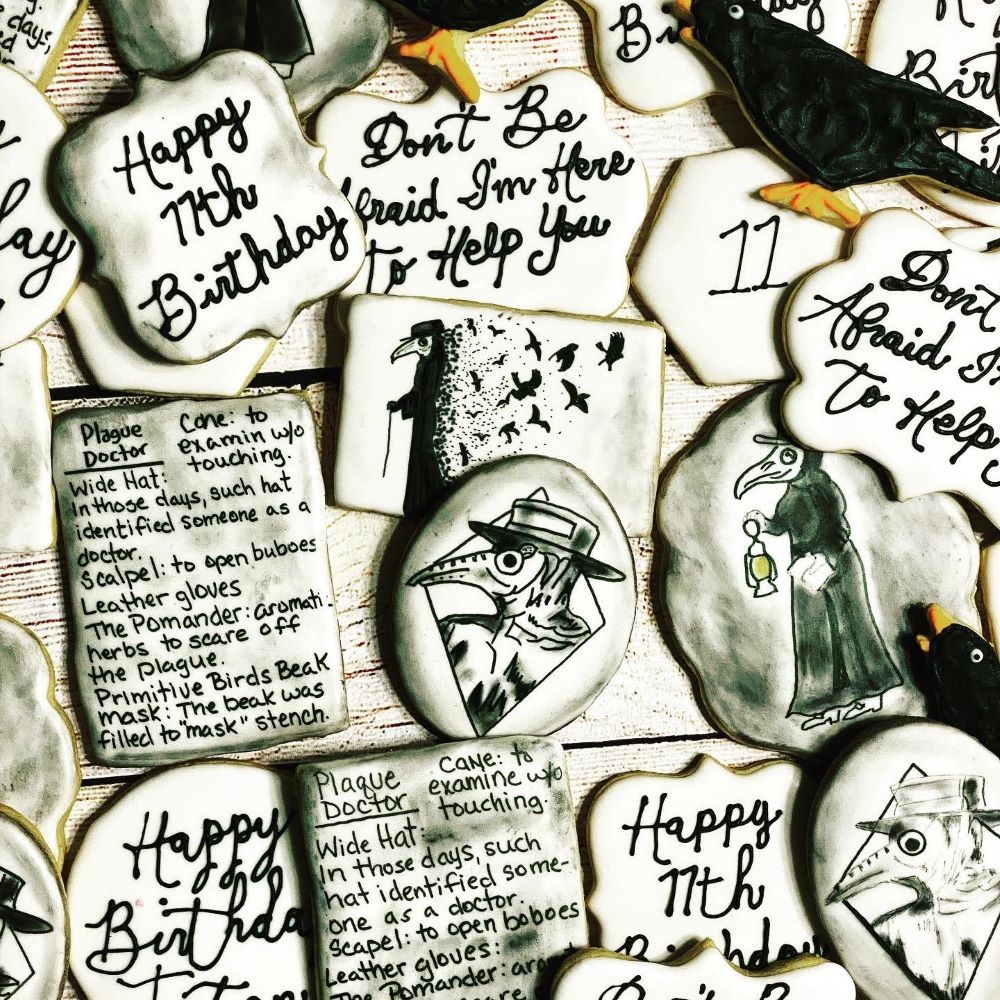 Happy
11th
Birthday
Don't Be
Afraid I'm Here
To Help You
11
Don't
Afraid I'm
To Help
Plague
Doctor
Cone: to
examin w/o
touching.
Wide Hat:
In those days, such hat
identified someone as a
doctor.
Scalpel: to open buboes
Leather gloves
The Pomander: aromati-
herbs to scare off
the Plague.
Primitive Birds Beak
mask: The beak was
filled to "mask" stench.
Happy
Birthda
Plaque
Doctor
Cane: to
examine w/o
touching.
Wide Hat:
In those days, such
hat identified some-
one as a doctor.
Scapel: to open boboes
Leather gloves:
The Pomander: aro
herbs to scare
Happy
11th
Birthday
Don't B
days,